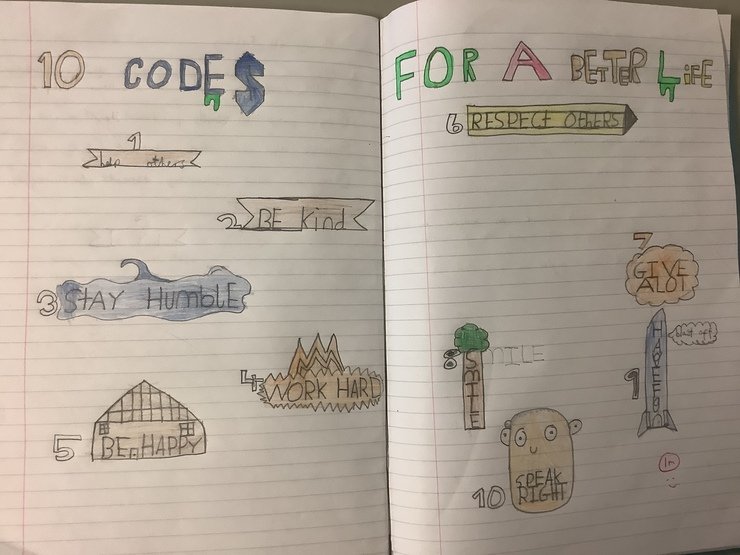 10 CODES
1
help others
2 BE kind
3 STAY HumblE
4 WORK HARD
5 BE HAPPY
FOR A BETTER LiFE
6 RESPECT OthERS
7
GIVE
ALOT
8 SMILE
SMILE
9
Blast off
10 SPEAK
RIGHT